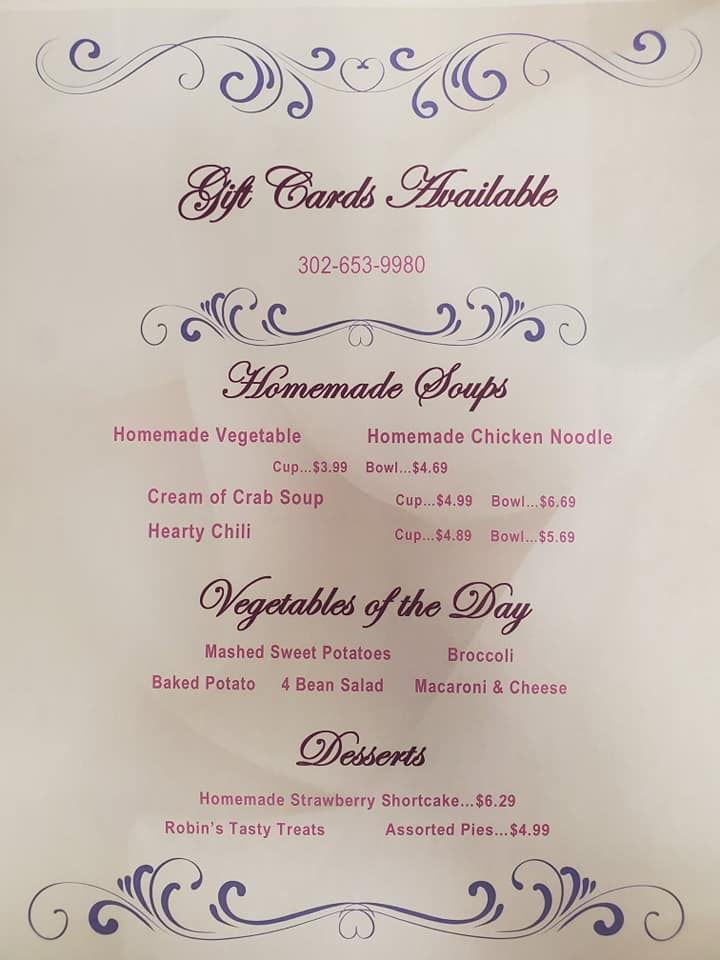 Gift Cards Available
302-653-9980
Homemade Soups
Homemade Vegetable Homemade Chicken Noodle
Cup...$3.99 Bowl...$4.69
Cream of Crab Soup Cup...$4.99 Bowl...$6.69
Hearty Chili Cup...$4.89 Bowl...$5.69
Vegetables of the Day
Mashed Sweet Potatoes Broccoli
Baked Potato 4 Bean Salad Macaroni & Cheese
Desserts
Homemade Strawberry Shortcake...$6.29
Robin's Tasty Treats Assorted Pies...$4.99